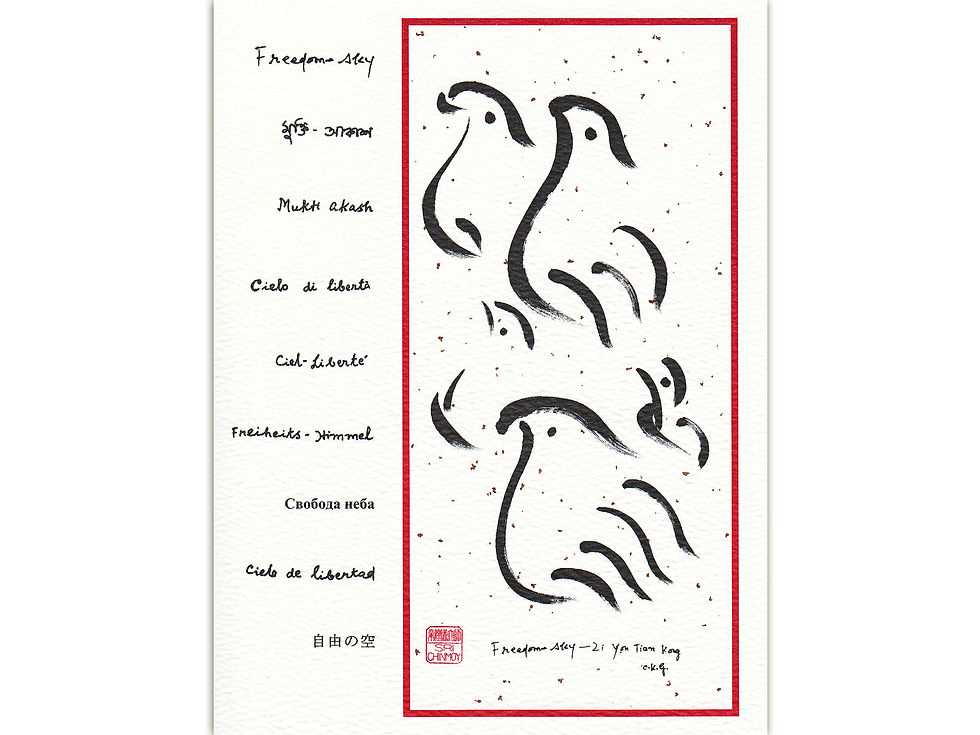 Freedom-Sky
মুক্তি - আকাশ
Mukti Akash
Cielo di libertà
Ciel-Liberté
Freiheits-Himmel
Свобода неба
Cielo de libertad
自由の空
SRI
CHINMOY
Freedom-Sky—Zi You Tian Kong
C.K.G.